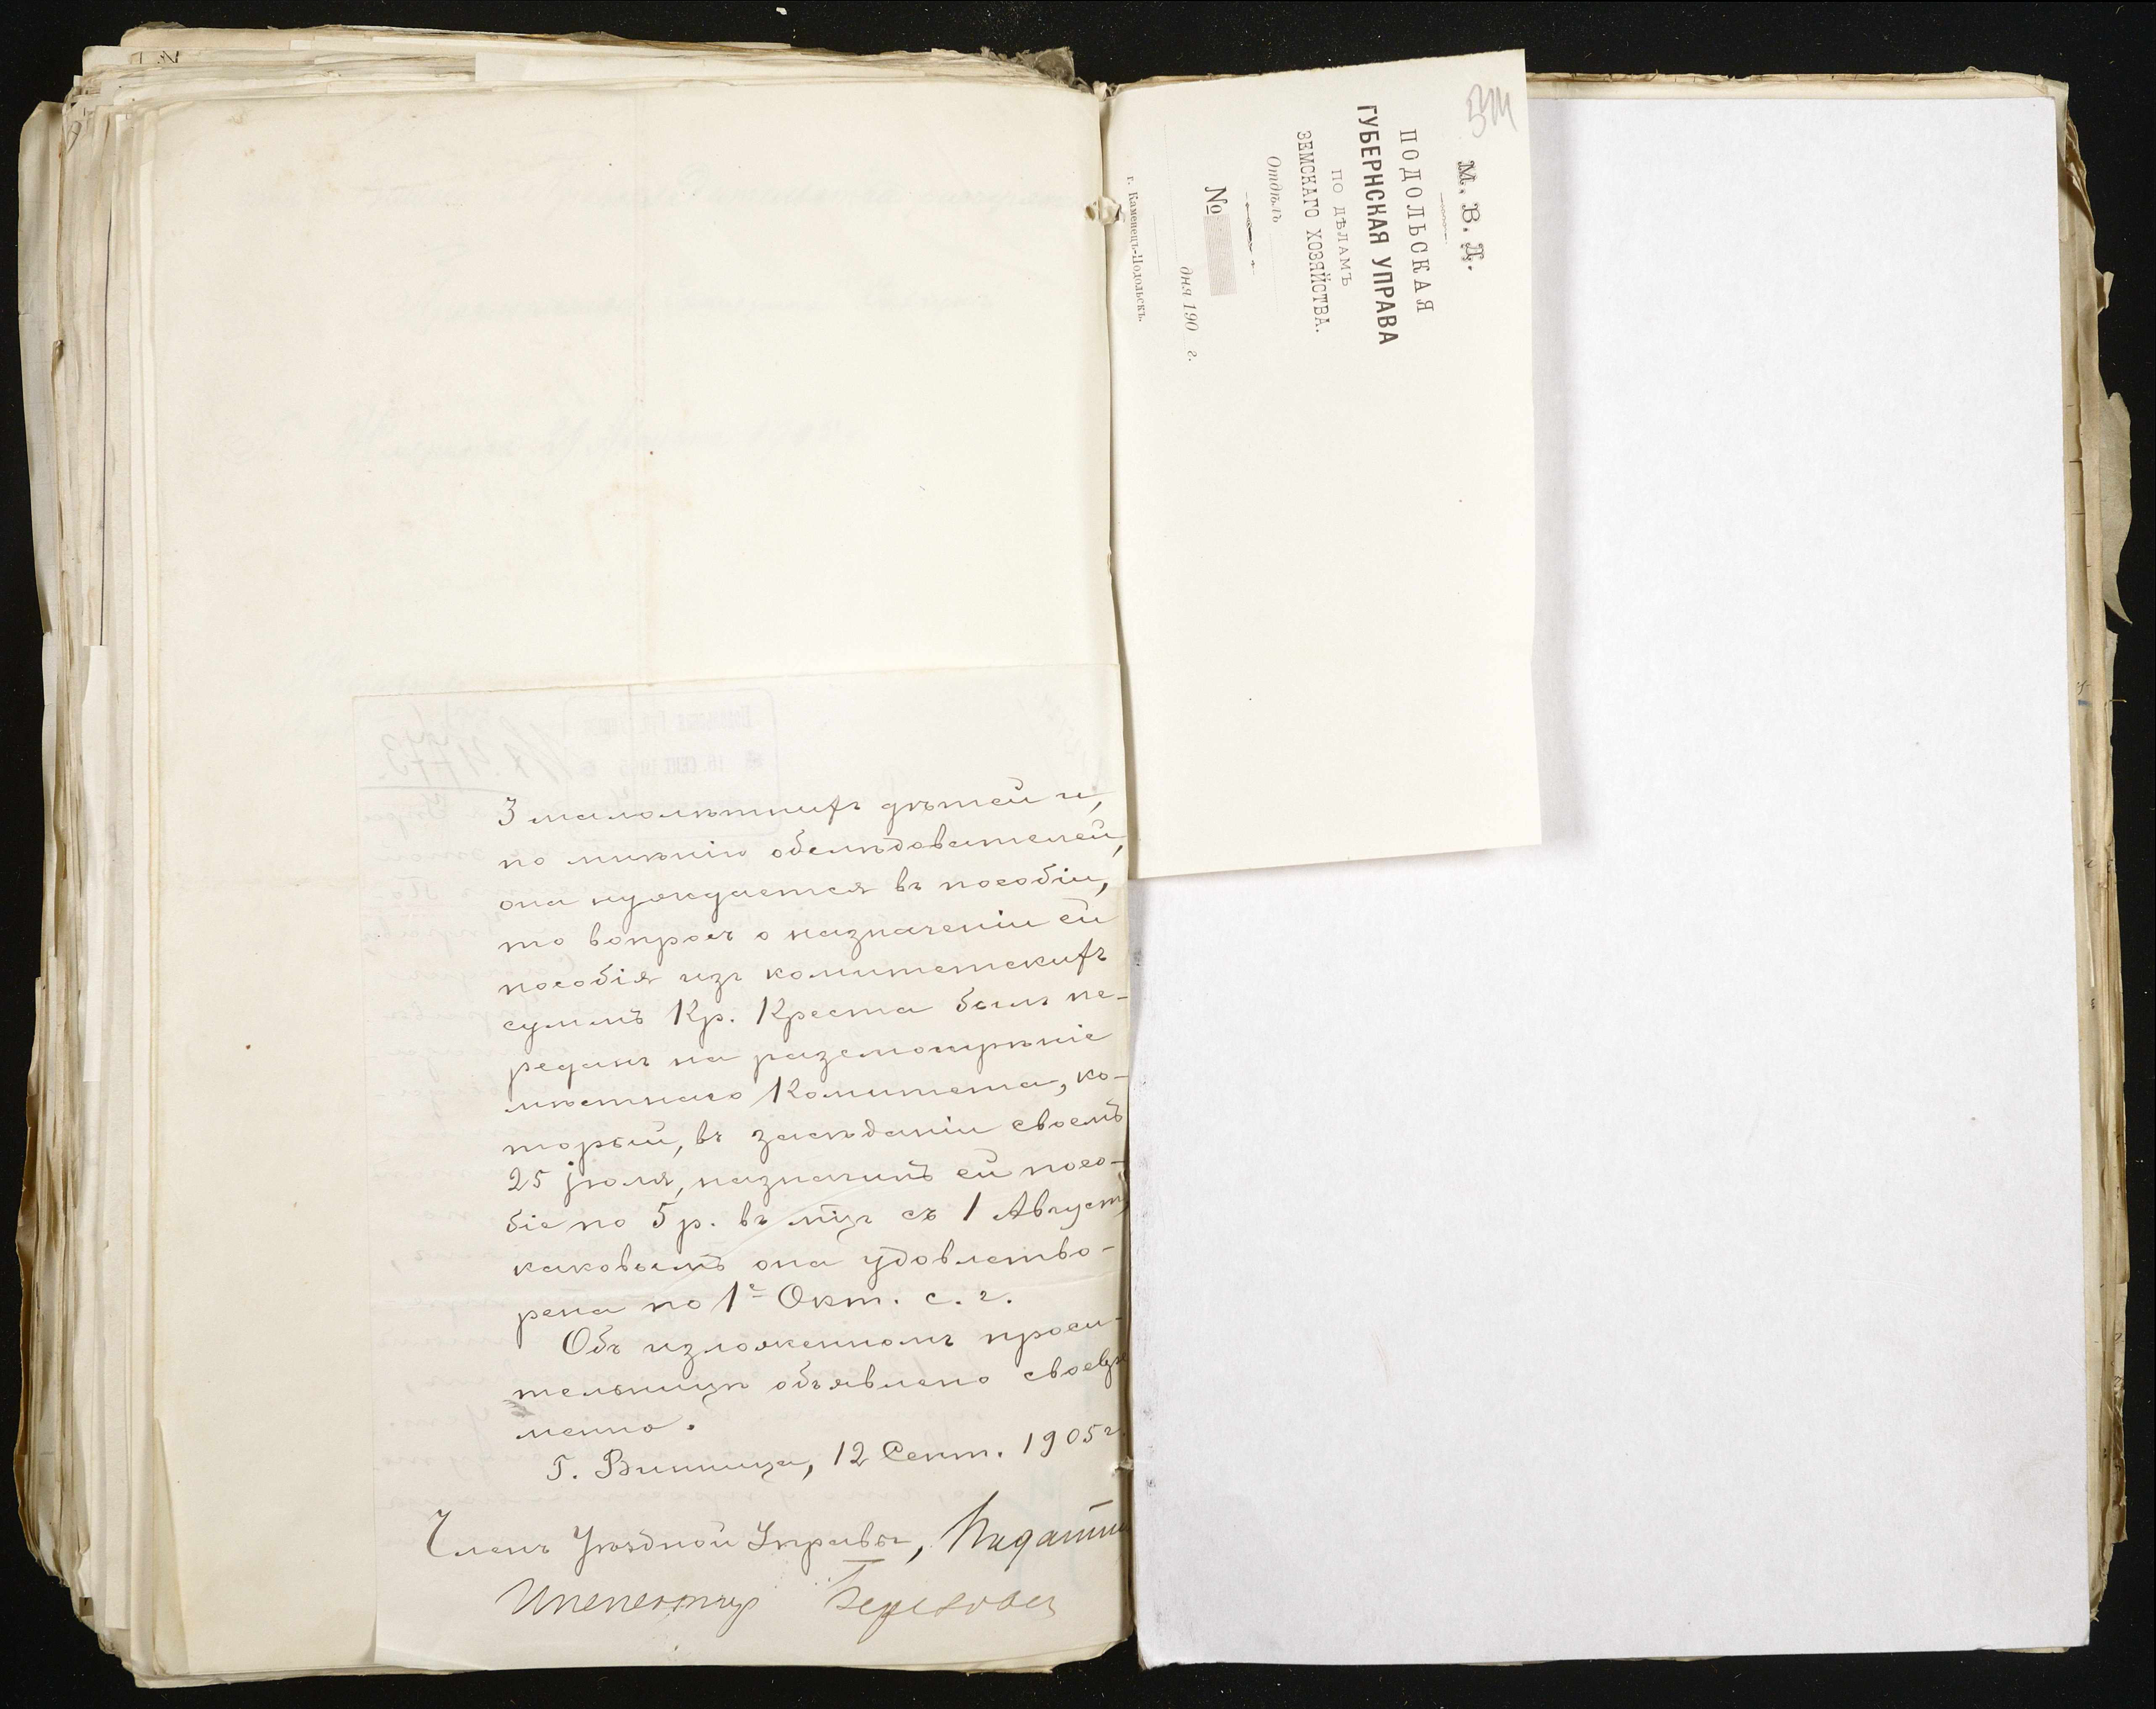 3 малолѣтнихъ дѣтей и,
по мнѣнію обслѣдователей,
она нуждается въ пособіи,
то вопросъ о назначеніи ей
пособія изъ комитетскихъ
суммъ Кр. Креста былъ пе-
реданъ на разсмотрѣніе
мѣстнаго Комитета, ко-
торый, въ засѣданіи своемъ
25 іюля, назначилъ ей посо-
біе по 5 р. въ мцъ съ 1 Август
каковымъ она удовлетво-
рена по 1е Окт. с. г.
Объ изложенномъ проси-
тельницѣ объявлено своевре
менно.
Г. Винница, 12 Сент. 1905 г.
Членъ Уѣздной Управы, Податн
Инспекторъ
М. В. Д.
ПОДОЛЬСКАЯ
ГУБЕРНСКАЯ УПРАВА
ПО ДѢЛАМЪ
ЗЕМСКАГО ХОЗЯЙСТВА.
Отдѣлъ
№
дня 190 г.
г. Каменецъ-Подольскъ.